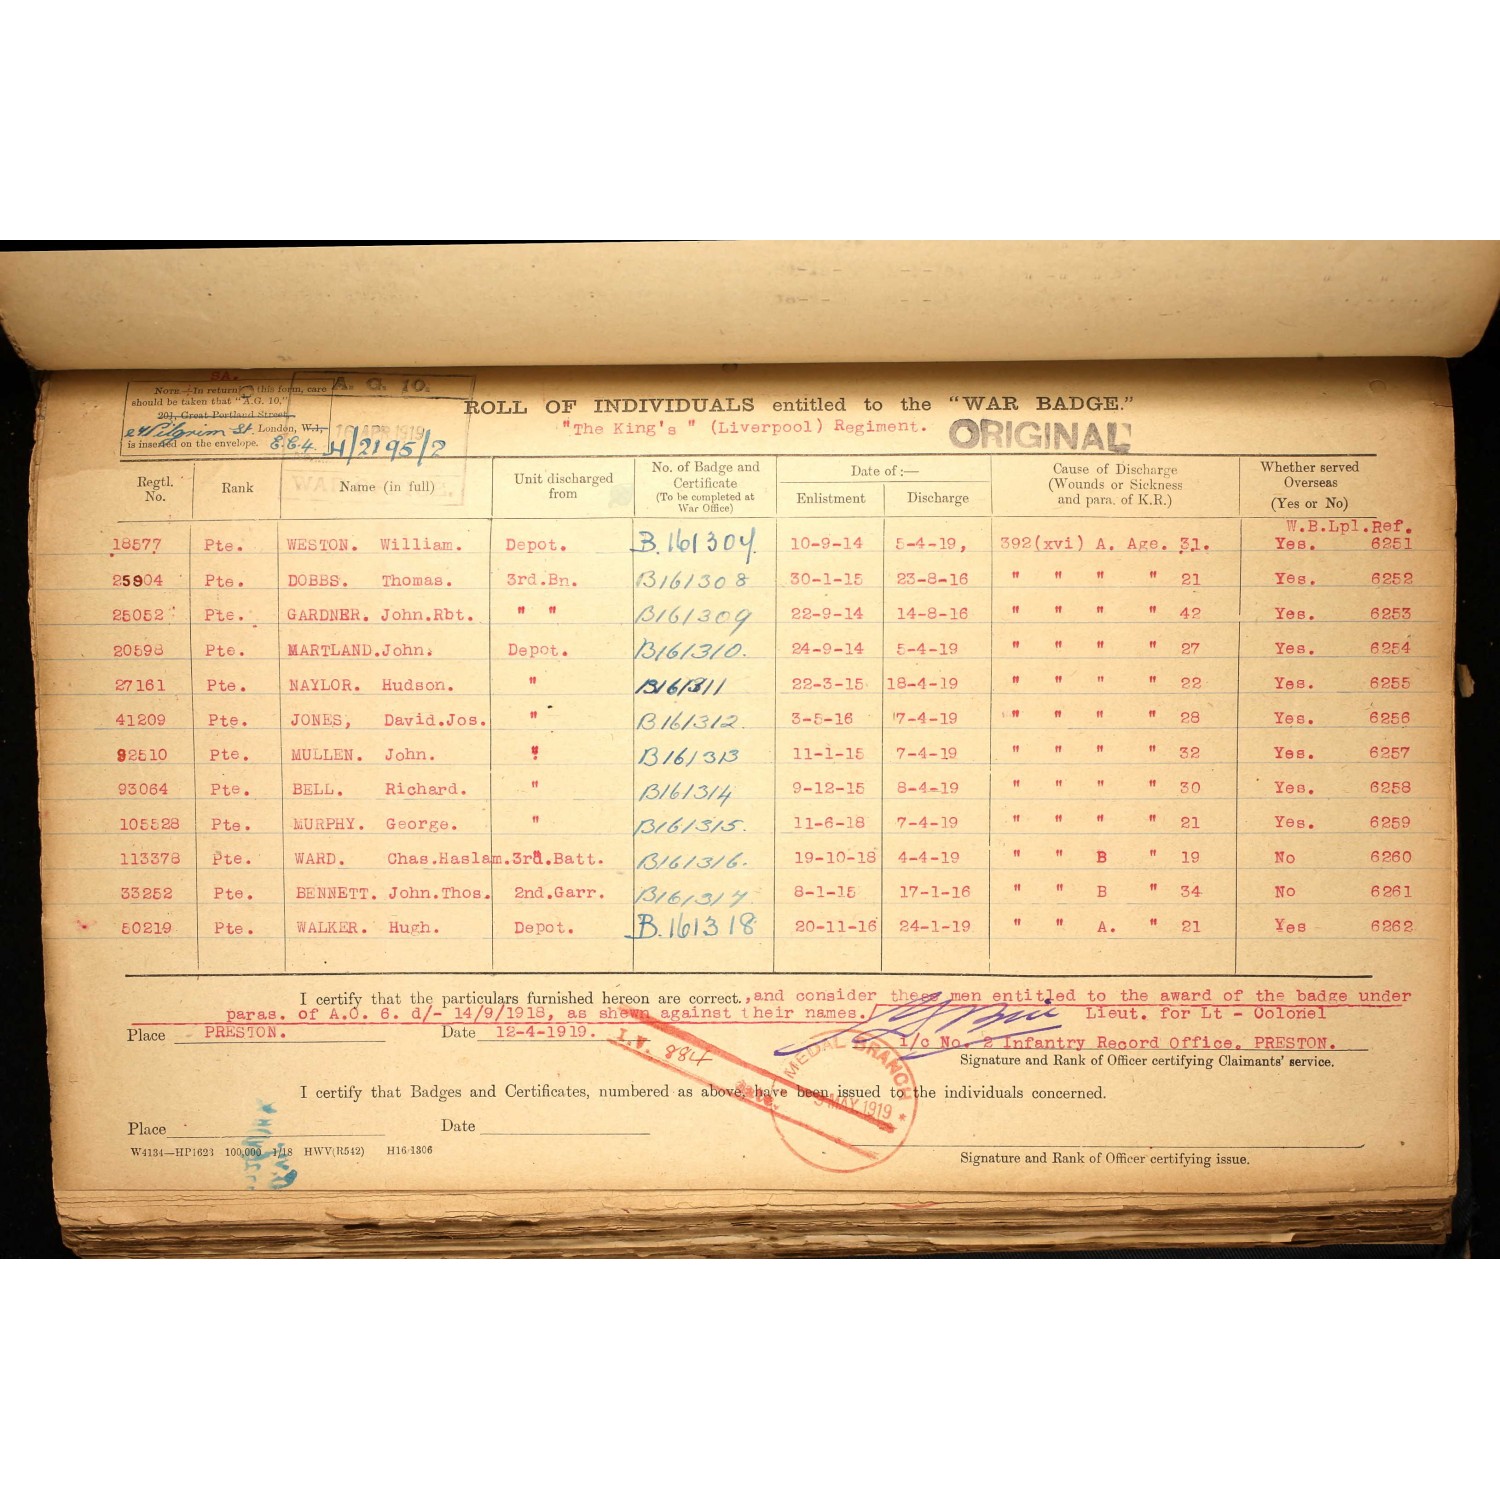 A. G. 10.
NOTE—In returning this form, care
should be taken that "A.G. 10,"
20, Great Portland Street,
Pilgrim St. London, W.1,
is inserted on the envelope. E.C.4.
16 APR 1919
H/2195/2
ROLL OF INDIVIDUALS entitled to the "WAR BADGE."
"The King's " (Liverpool) Regiment.
ORIGINAL
Regtl. No. Rank Name (in full) Unit discharged from No. of Badge and Certificate (To be completed at War Office) Date of :— Enlistment Discharge Cause of Discharge (Wounds or Sickness and para. of K.R.) Whether served Overseas (Yes or No)
W.B.Lpl.Ref.
18577 Pte. WESTON. William. Depot. B.161304. 10-9-14 5-4-19, 392(xvi) A. Age. 31. Yes. 6251
25904 Pte. DOBBS. Thomas. 3rd.Bn. B161308 30-1-15 23-8-16 " " " " 21 Yes. 6252
25052 Pte. GARDNER. John.Rbt. " " B161309 22-9-14 14-8-16 " " " " 42 Yes. 6253
20598 Pte. MARTLAND.John. Depot. B161310. 24-9-14 5-4-19 " " " " 27 Yes. 6254
27161 Pte. NAYLOR. Hudson. " B161311 22-3-15 18-4-19 " " " " 22 Yes. 6255
41209 Pte. JONES, David.Jos. " B161312. 3-5-16 7-4-19 " " " " 28 Yes. 6256
92510 Pte. MULLEN. John. " B161313 11-1-15 7-4-19 " " " " 32 Yes. 6257
93064 Pte. BELL. Richard. " B161314 9-12-15 8-4-19 " " " " 30 Yes. 6258
105528 Pte. MURPHY. George. " B161315. 11-6-18 7-4-19 " " " " 21 Yes. 6259
113378 Pte. WARD. Chas.Haslam.3rd.Batt. B161316. 19-10-18 4-4-19 " " B " 19 No 6260
33252 Pte. BENNETT. John.Thos. 2nd.Garr. B161317 8-1-15 17-1-16 " " B " 34 No 6261
50219 Pte. WALKER. Hugh. Depot. B.161318 20-11-16 24-1-19 " " A. " 21 Yes 6262
I certify that the particulars furnished hereon are correct.,and consider these men entitled to the award of the badge under
paras. of A.O. 6. d/- 14/9/1918, as shewn against their names. Lieut. for Lt - Colonel
Place PRESTON. Date 12-4-1919. I/c No. 2 Infantry Record Office. PRESTON.
Signature and Rank of Officer certifying Claimants' service.
I.V. 884
MEDAL BRANCH
MAY 1919
I certify that Badges and Certificates, numbered as above, have been issued to the individuals concerned.
Place Date
W4134—HP1623 100,000 1/18 HWV(R542) H16/1306
Signature and Rank of Officer certifying issue.